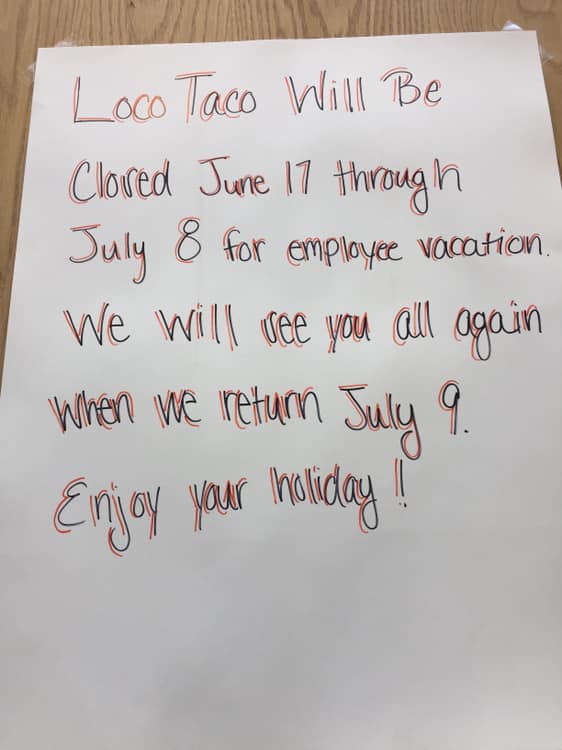 Loco Taco Will Be
Closed June 17 through
July 8 for employee vacation.
We will see you all again
when we return July 9.
Enjoy your holiday!